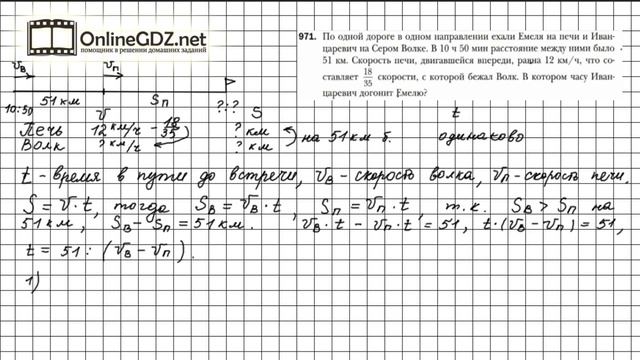 OnlineGDZ.net
помощник в решении домашних заданий
971. По одной дороге в одном направлении ехали Емеля на печи и Иван-
царевич на Сером Волке. В 10 ч 50 мин расстояние между ними было
51 км. Скорость печи, двигавшейся впереди, равна 12 км/ч, что со-
ставляет 18/35 скорости, с которой бежал Волк. В котором часу Иван-
царевич догонит Емелю?
Vв Vп
51 км Sп
10:50 ?:?
V S t
Печь 12 км/ч – 18/35 ? км на 51 км б. одинаково
Волк ? км/ч ? км
t - время в пути до встречи, Vв - скорость волка, Vп - скорость печи.
S = V · t, тогда Sв = Vв · t, Sп = Vп · t, т.к. Sв > Sп на
51 км, Sв – Sп = 51 км. Vв · t – Vп · t = 51, t · (Vв – Vп) = 51,
t = 51 : (Vв – Vп).
1)